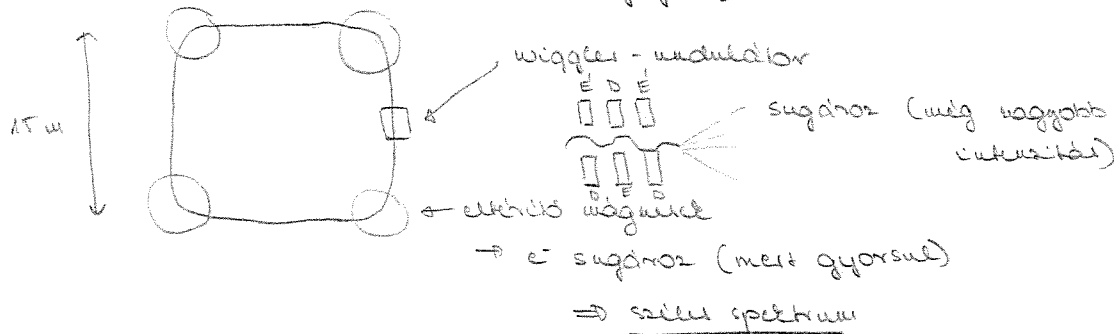 wiggler - undulátor
É D É
15 m
sugároz (még nagyobb
intenzitás)
D É D
← eltérítő mágnesek
→ e⁻ sugároz (mert gyorsul)
⇒ széles spektrum